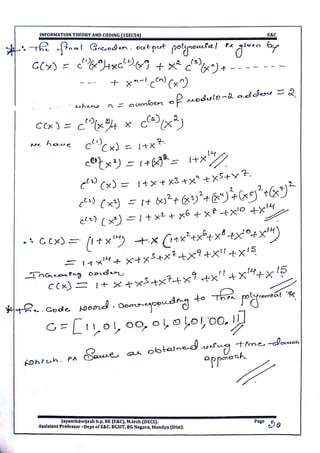 INFORMATION THEORY AND CODING (15EC54) E&C
*:- The final Encoder output polynomial is given by
C(x) = c⁽¹⁾(xⁿ)+x c⁽²⁾(xⁿ) + x² c⁽³⁾(xⁿ)+ - - - - -
- - - + xⁿ⁻¹ c⁽ⁿ⁾(xⁿ)
where n = number of modulo-2 adders = 2
C(x) = c⁽¹⁾(x²)+ x c⁽²⁾(x²)
we have c⁽¹⁾(x) = 1+x⁷
c⁽¹⁾(x²) = 1+(x⁷)² = 1+x¹⁴
c⁽²⁾(x) = 1+x+x³+x⁴+x⁵+x⁷
c⁽²⁾(x²) = 1+(x)²+(x³)²+(x⁴)²+(x⁵)²+(x⁷)²
c⁽²⁾(x²) = 1+x²+x⁶+x⁸+x¹⁰+x¹⁴
∴ C(x) = (1+x¹⁴)+x(1+x²+x⁶+x⁸+x¹⁰+x¹⁴)
= 1+x¹⁴+x+x³+x⁷+x⁹+x¹¹+x¹⁵
Increasing order
C(x) = 1+x+x³+x⁷+x⁹+x¹¹+x¹⁴+x¹⁵
* The code word corresponding to this polynomial is
C = [11, 01, 00, 01, 01, 01, 00, 11]
which is same as obtained using time-domain
approach
Jayanthdwijesh h.p, BE (E&C), M.tech (DECS). Page 20
Assistant Professor –Dept of E&C. BGSIT, BG Nagara, Mandya (Dist).